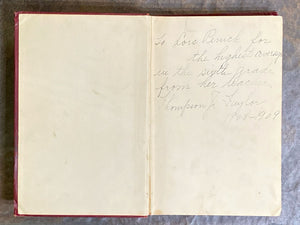 To Lois Penick for
the highest average
in the sixth grade
from her teacher,
Thompson J. Taylor
1908-1909